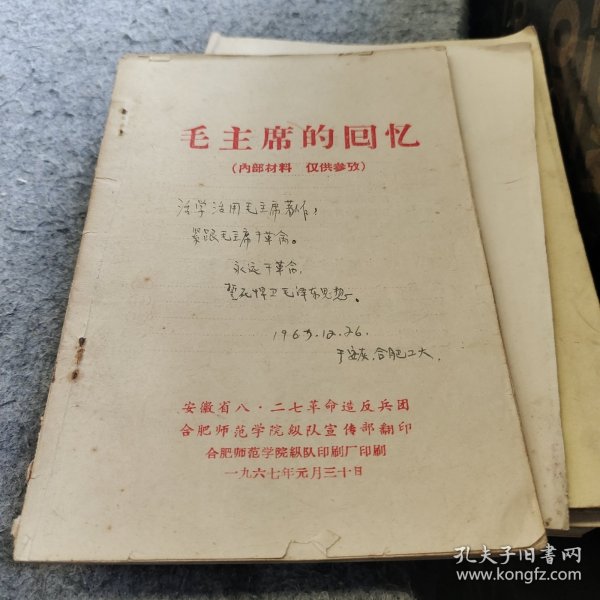 毛主席的回忆
(内部材料 仅供参攷)
活学活用毛主席著作,
紧跟毛主席干革命。
永远干革命,
誓死悍卫毛泽东思想。
12.26.
合肥工大.
安徽省八·二七革命造反兵团
合肥师范学院纵队宣传部翻印
合肥师范学院纵队印刷厂印刷
一九六七年元月三十日
孔夫子旧书网
www.kongfz.com